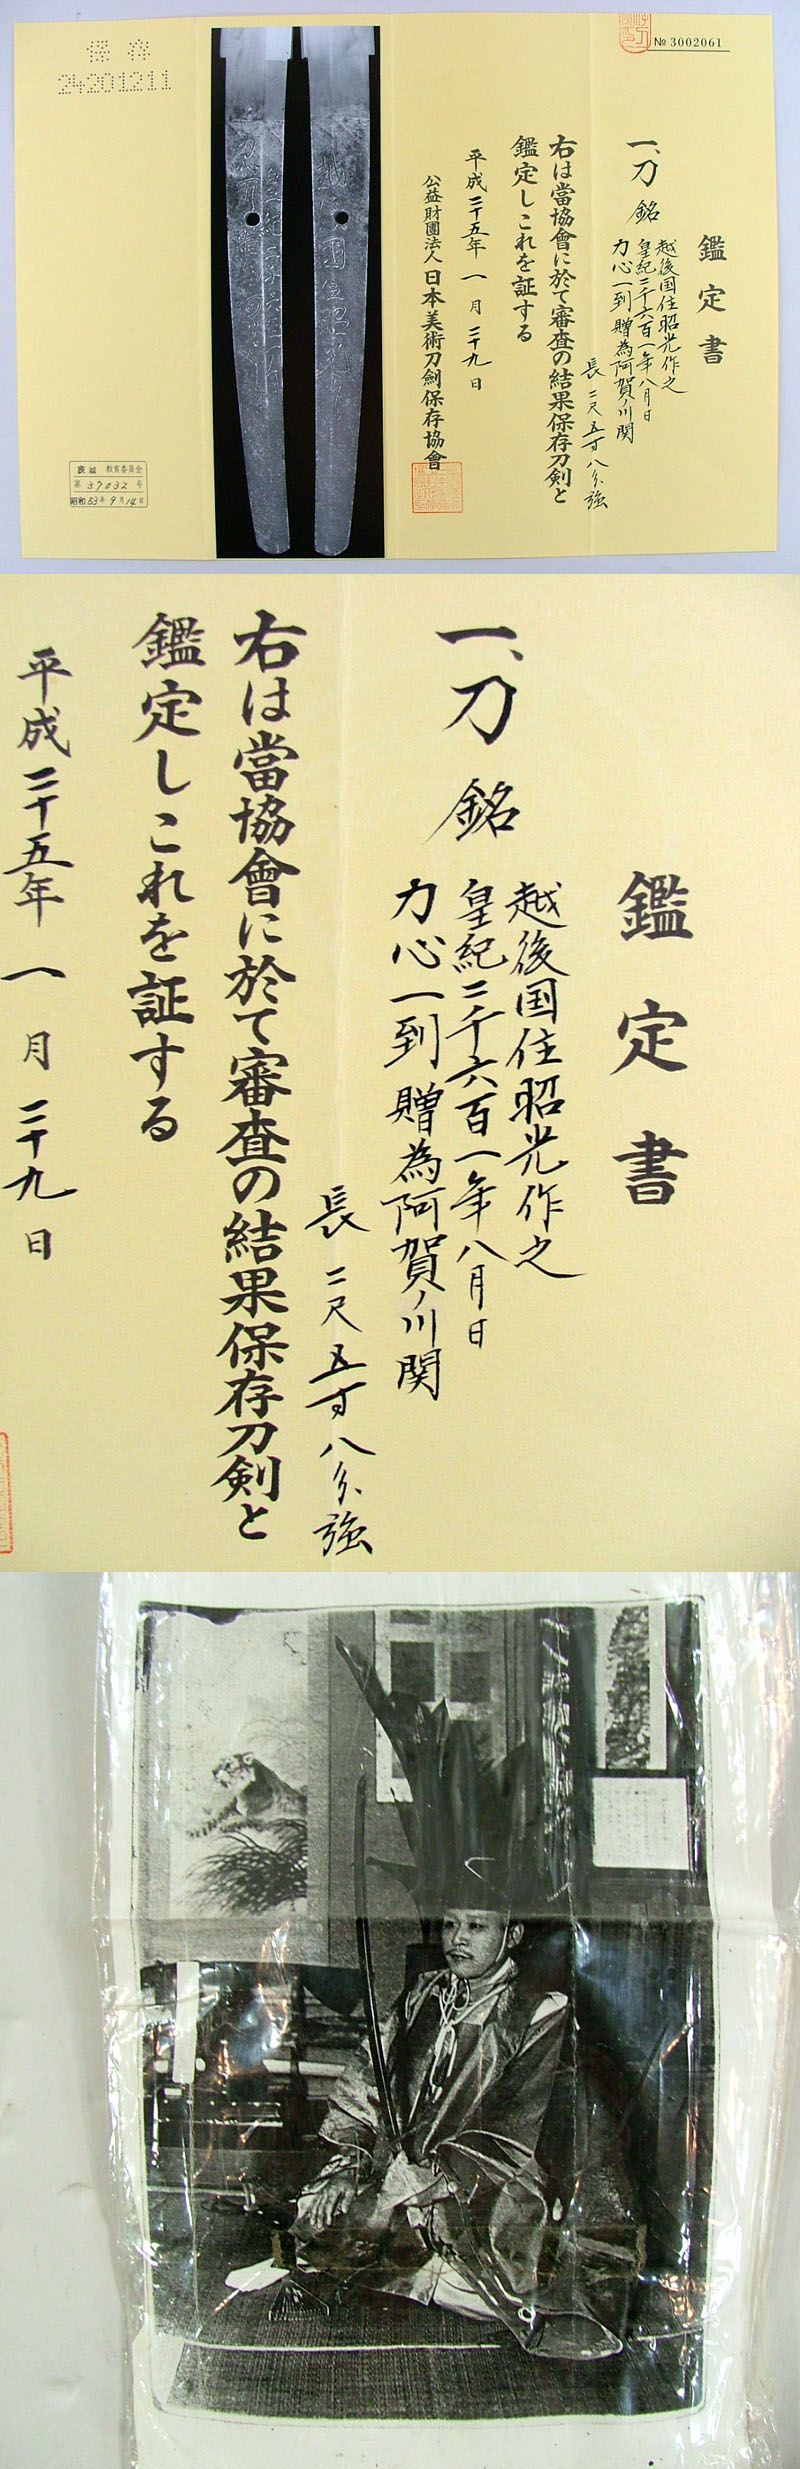 № 3002061
鑑定書
一、刀 銘
越後国住昭光作之
皇紀二千六百一年八月日
力心一到 贈為阿賀ノ川関
長 二尺五寸八分強
右は當協會に於て審査の結果保存刀剣と
鑑定しこれを証する
平成二十五年一月二十九日
公益財團法人日本美術刀劍保存協會
保存
24201211
茨城 教育委員会
第 37032 号
昭和53年9月14日
鑑定書
一、刀 銘
越後国住昭光作之
皇紀二千六百一年八月日
力心一到 贈為阿賀ノ川関
長 二尺五寸八分強
右は當協會に於て審査の結果保存刀剣と
鑑定しこれを証する
平成二十五年一月二十九日